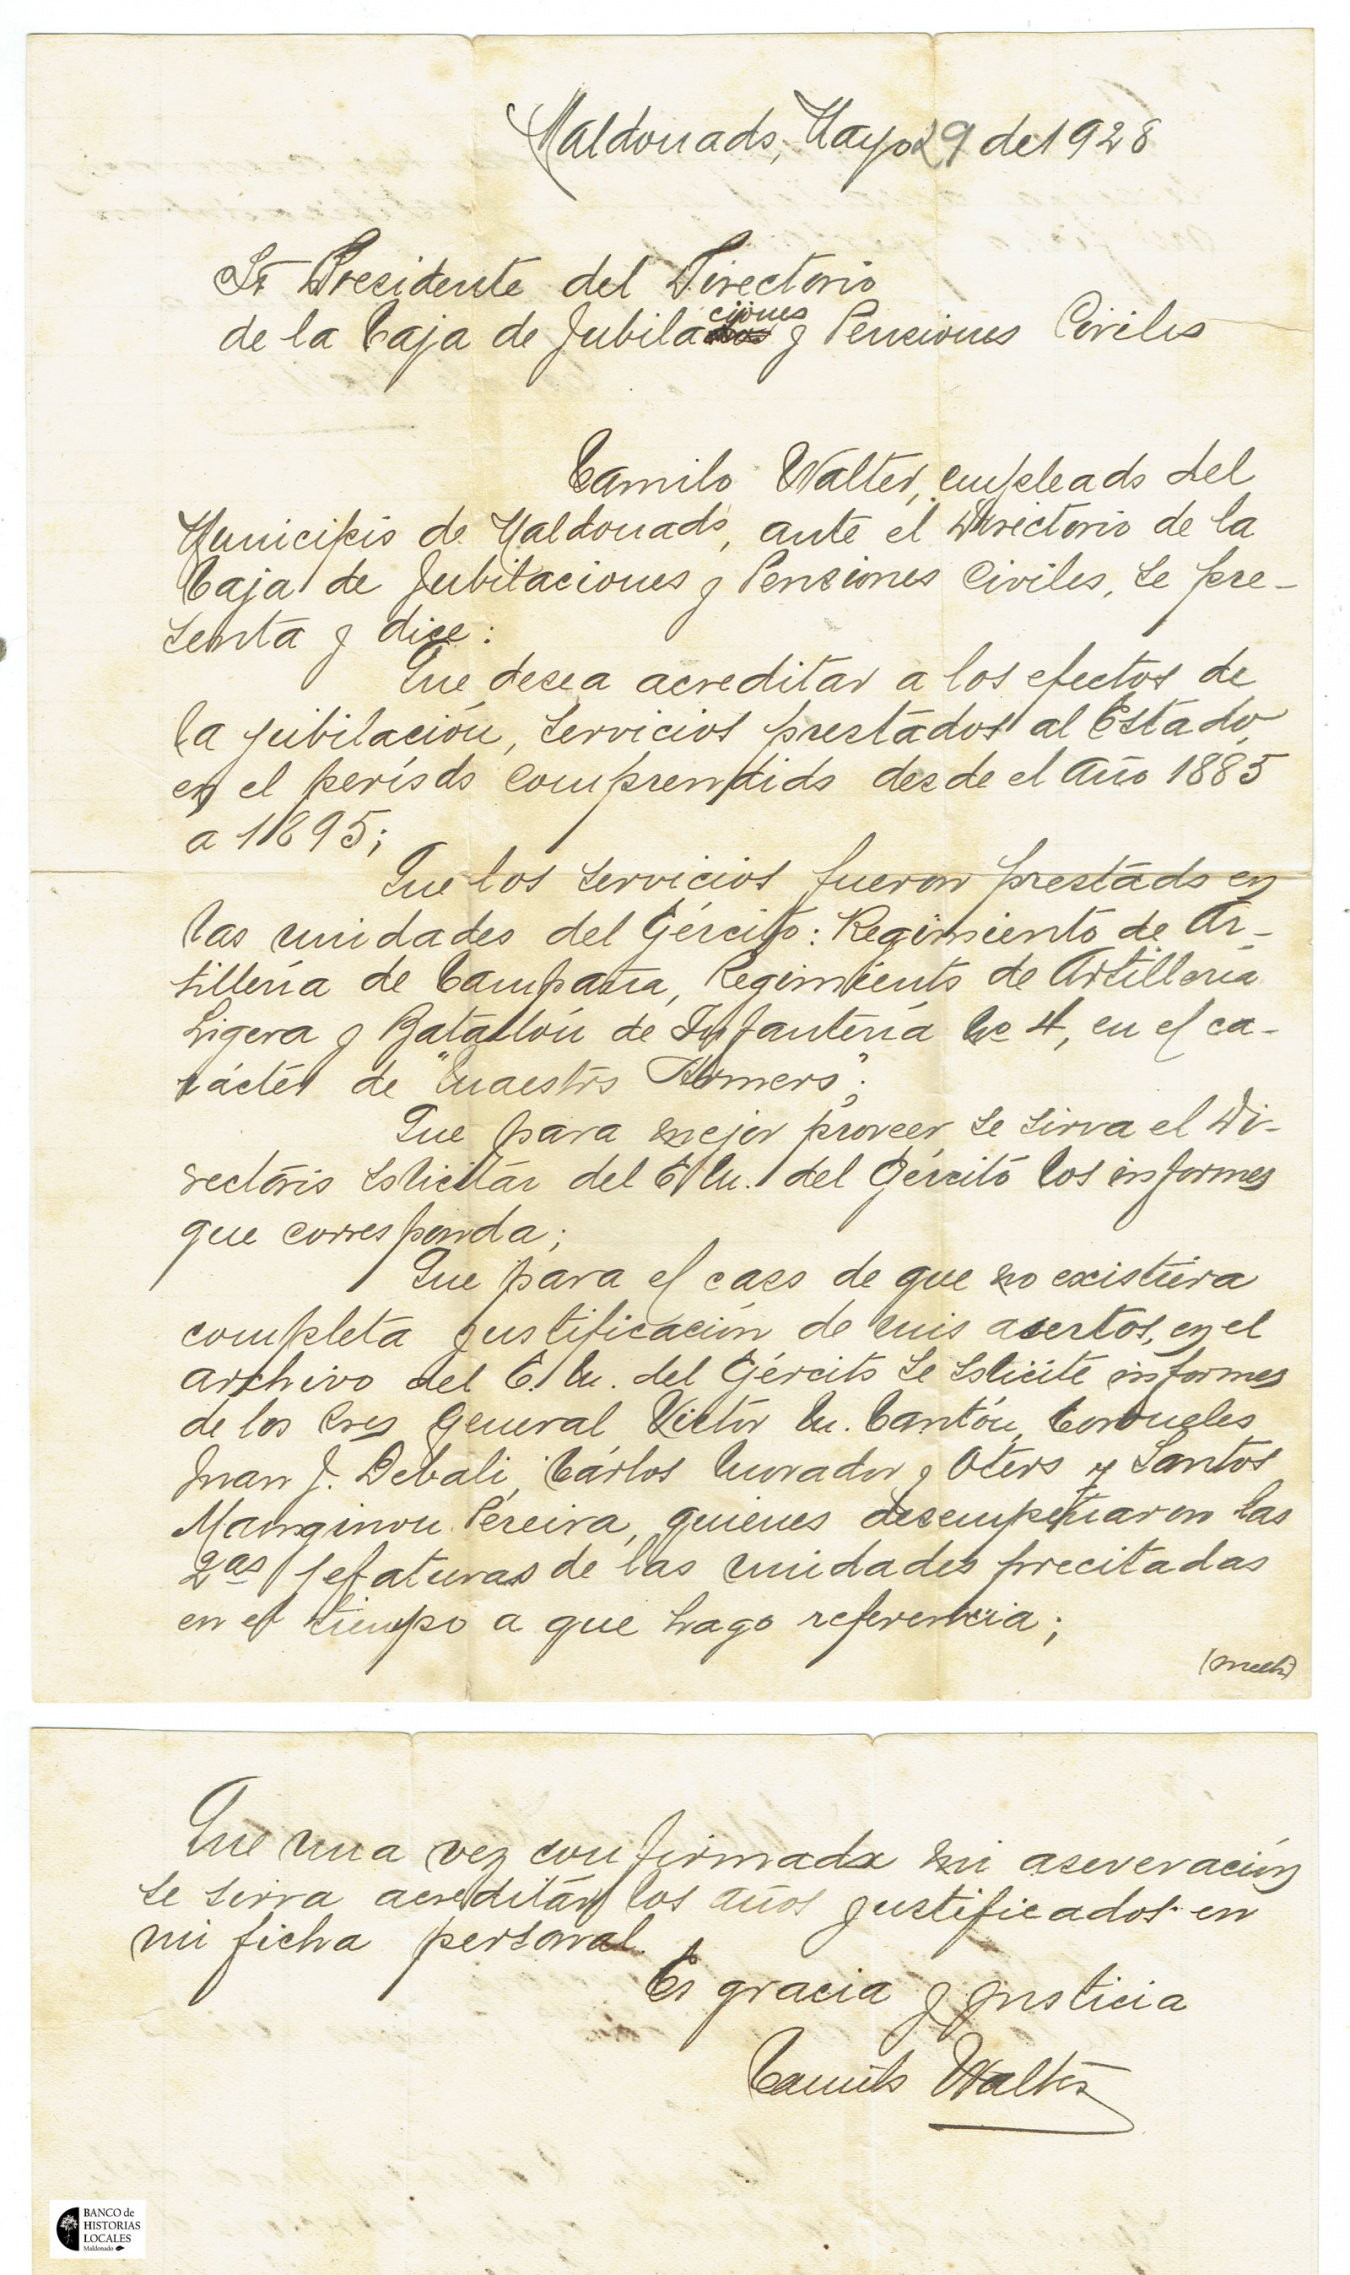 Maldonado, Mayo 29 de 1928
Sr Presidente del Directorio
de la Caja de Jubilaciones y Pensiones Civiles
Camilo Walter, empleado del
Municipio de Maldonado, ante el Directorio de la
Caja de Jubilaciones y Pensiones Civiles, se pre-
senta y dice:
Que desea acreditar a los efectos de
la jubilación, servicios prestados al Estado,
en el período comprendido desde el año 1885
a 1895;
Que los servicios fueron prestado en
las unidades del Ejército: Regimiento de Ar-
tillería de Campaña, Regimiento de Artillería
Ligera y Batallón de Infantería No 4, en el ca-
rácter de "Maestro Armero";
Que para mejor proveer se sirva el Di-
rectorio solicitar del E. M. del Ejército los informes
que corresponda;
Que para el caso de que no existiera
completa justificación de mis asertos, en el
archivo del E. M. del Ejército se solicite informes
de los Sres General Victor M. Cantón, Coroneles
Juan J. Debali, Cárlos Morador y Otero y Santos
Manginou Pereira, quienes desempeñaron las
2as jefaturas de las unidades precitadas
en el tiempo a que hago referencia;
Que una vez confirmada mi aseveración
se sirva acreditar los años justificados en
mi ficha personal.
Es gracia y justicia
Camilo Walter
BANCO de
HISTORIAS
LOCALES
Maldonado